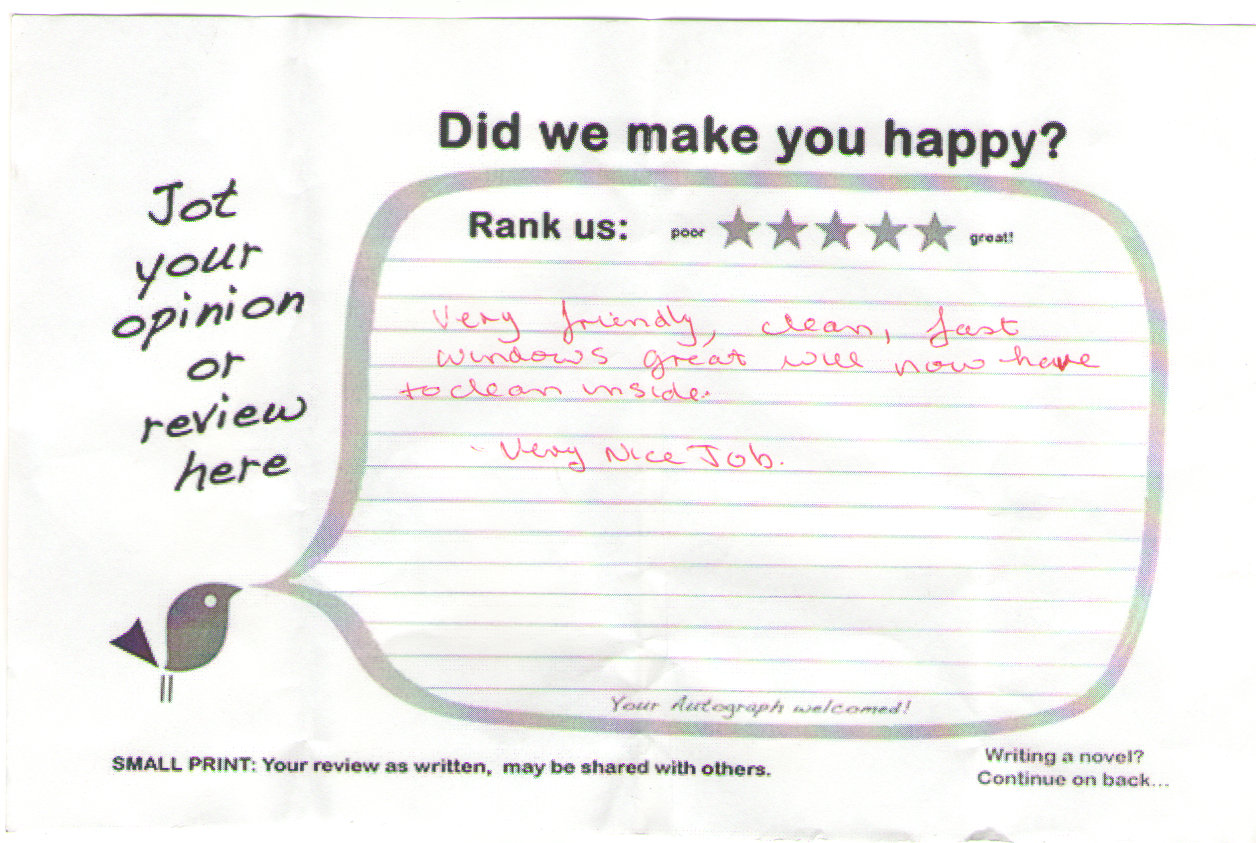 Did we make you happy?
Jot
your
opinion
or
review
here
Rank us: poor great!
Very friendly, clean, fast
windows great will now have
to clean inside.
- Very Nice Job.
Your Autograph welcomed!
SMALL PRINT: Your review as written, may be shared with others.
Writing a novel?
Continue on back...